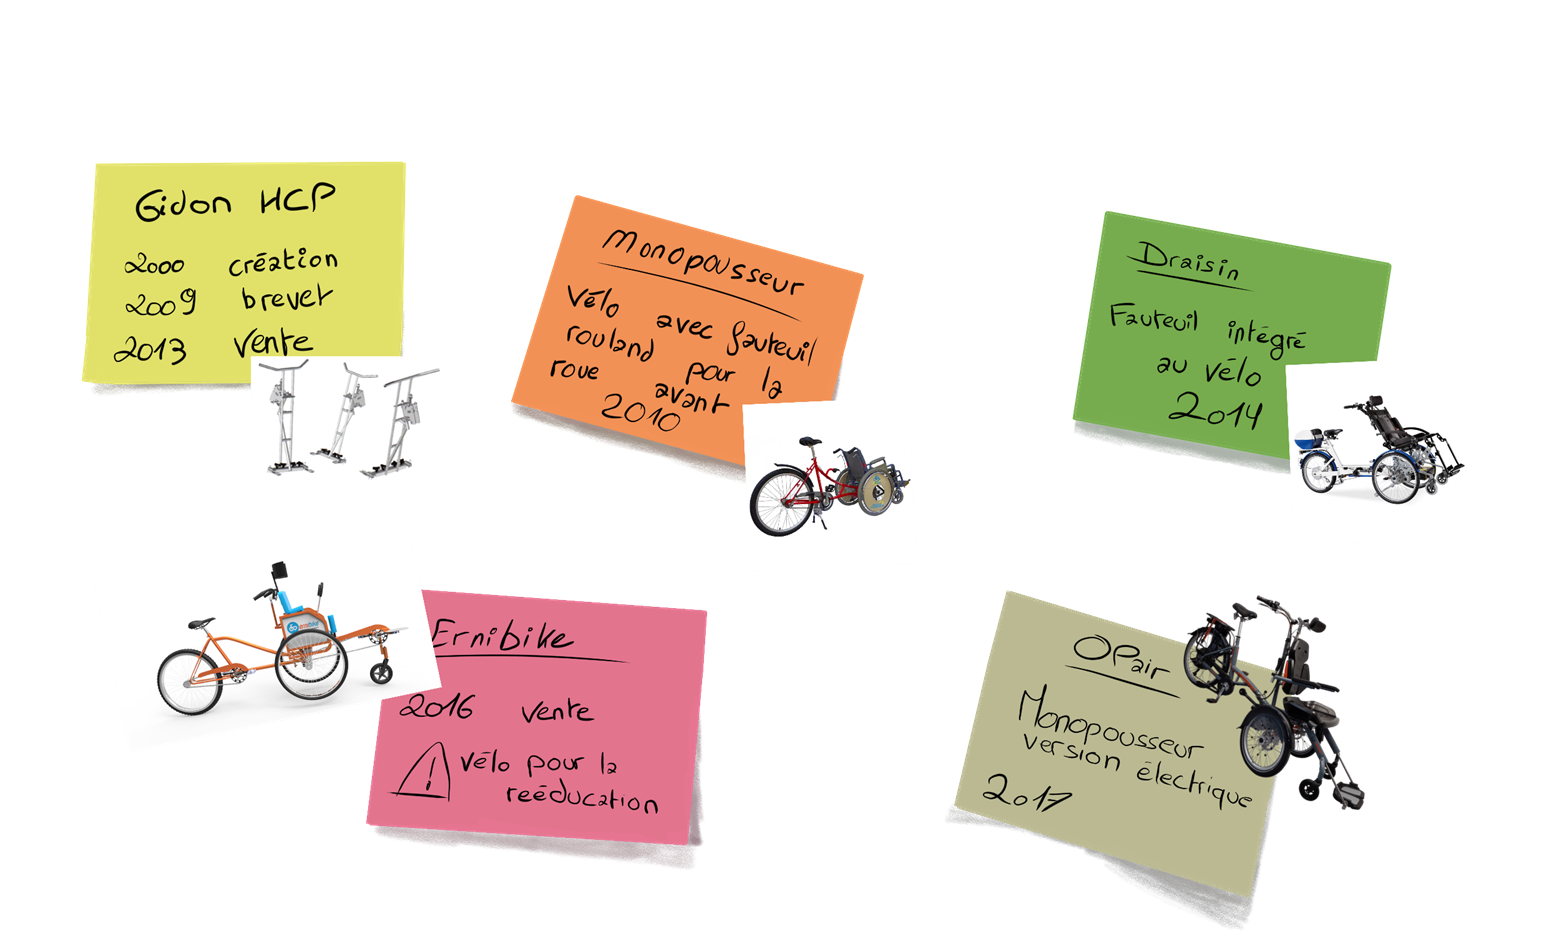 Gidon HCP
2000 création
2009 brevet
2013 vente
Monopousseur
Vélo avec fauteuil
rouland pour la
roue avant
2010
Draisin
Fauteuil intégré
au vélo
2014
Ernibike
2016 vente
! vélo pour la
reéducation
OPair
Monopousseur
version électrique
2017